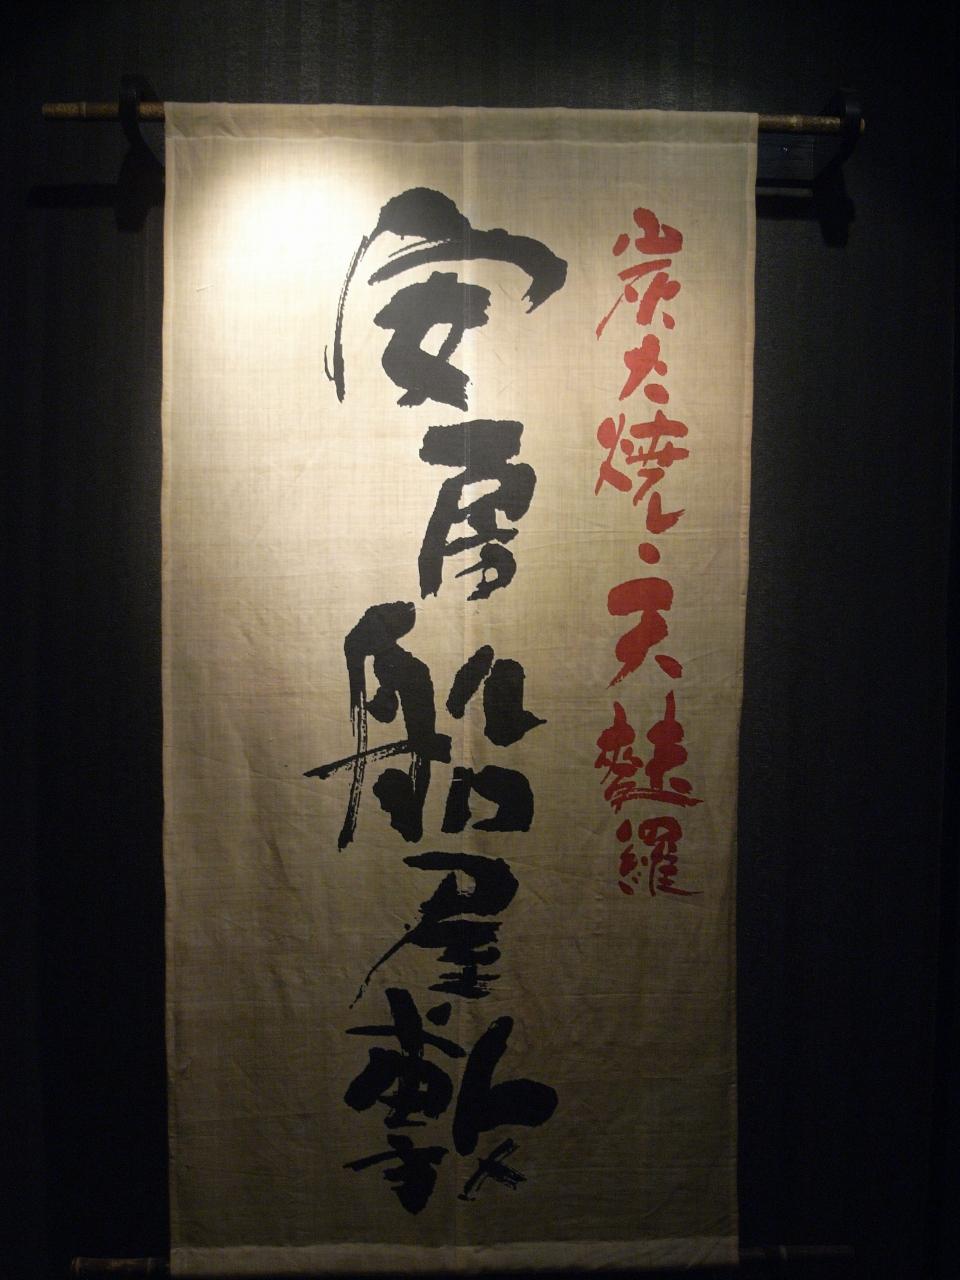 炭火焼・天麩羅
安房船屋敷